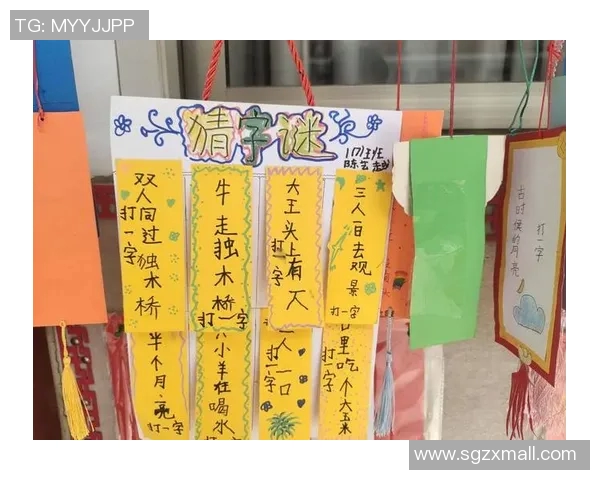 TG: MYYJJPP
猜字谜
171班
双人同过独木桥
打一字
牛走独木桥
打一字
大王头上有人
打一字
三人一日去观景
打一字
半个月亮
打一字
小羊在喝水
人一口
打一字
口里吃个大玉米
打一字
古时候的月亮
打一字
www.sgzxmall.com